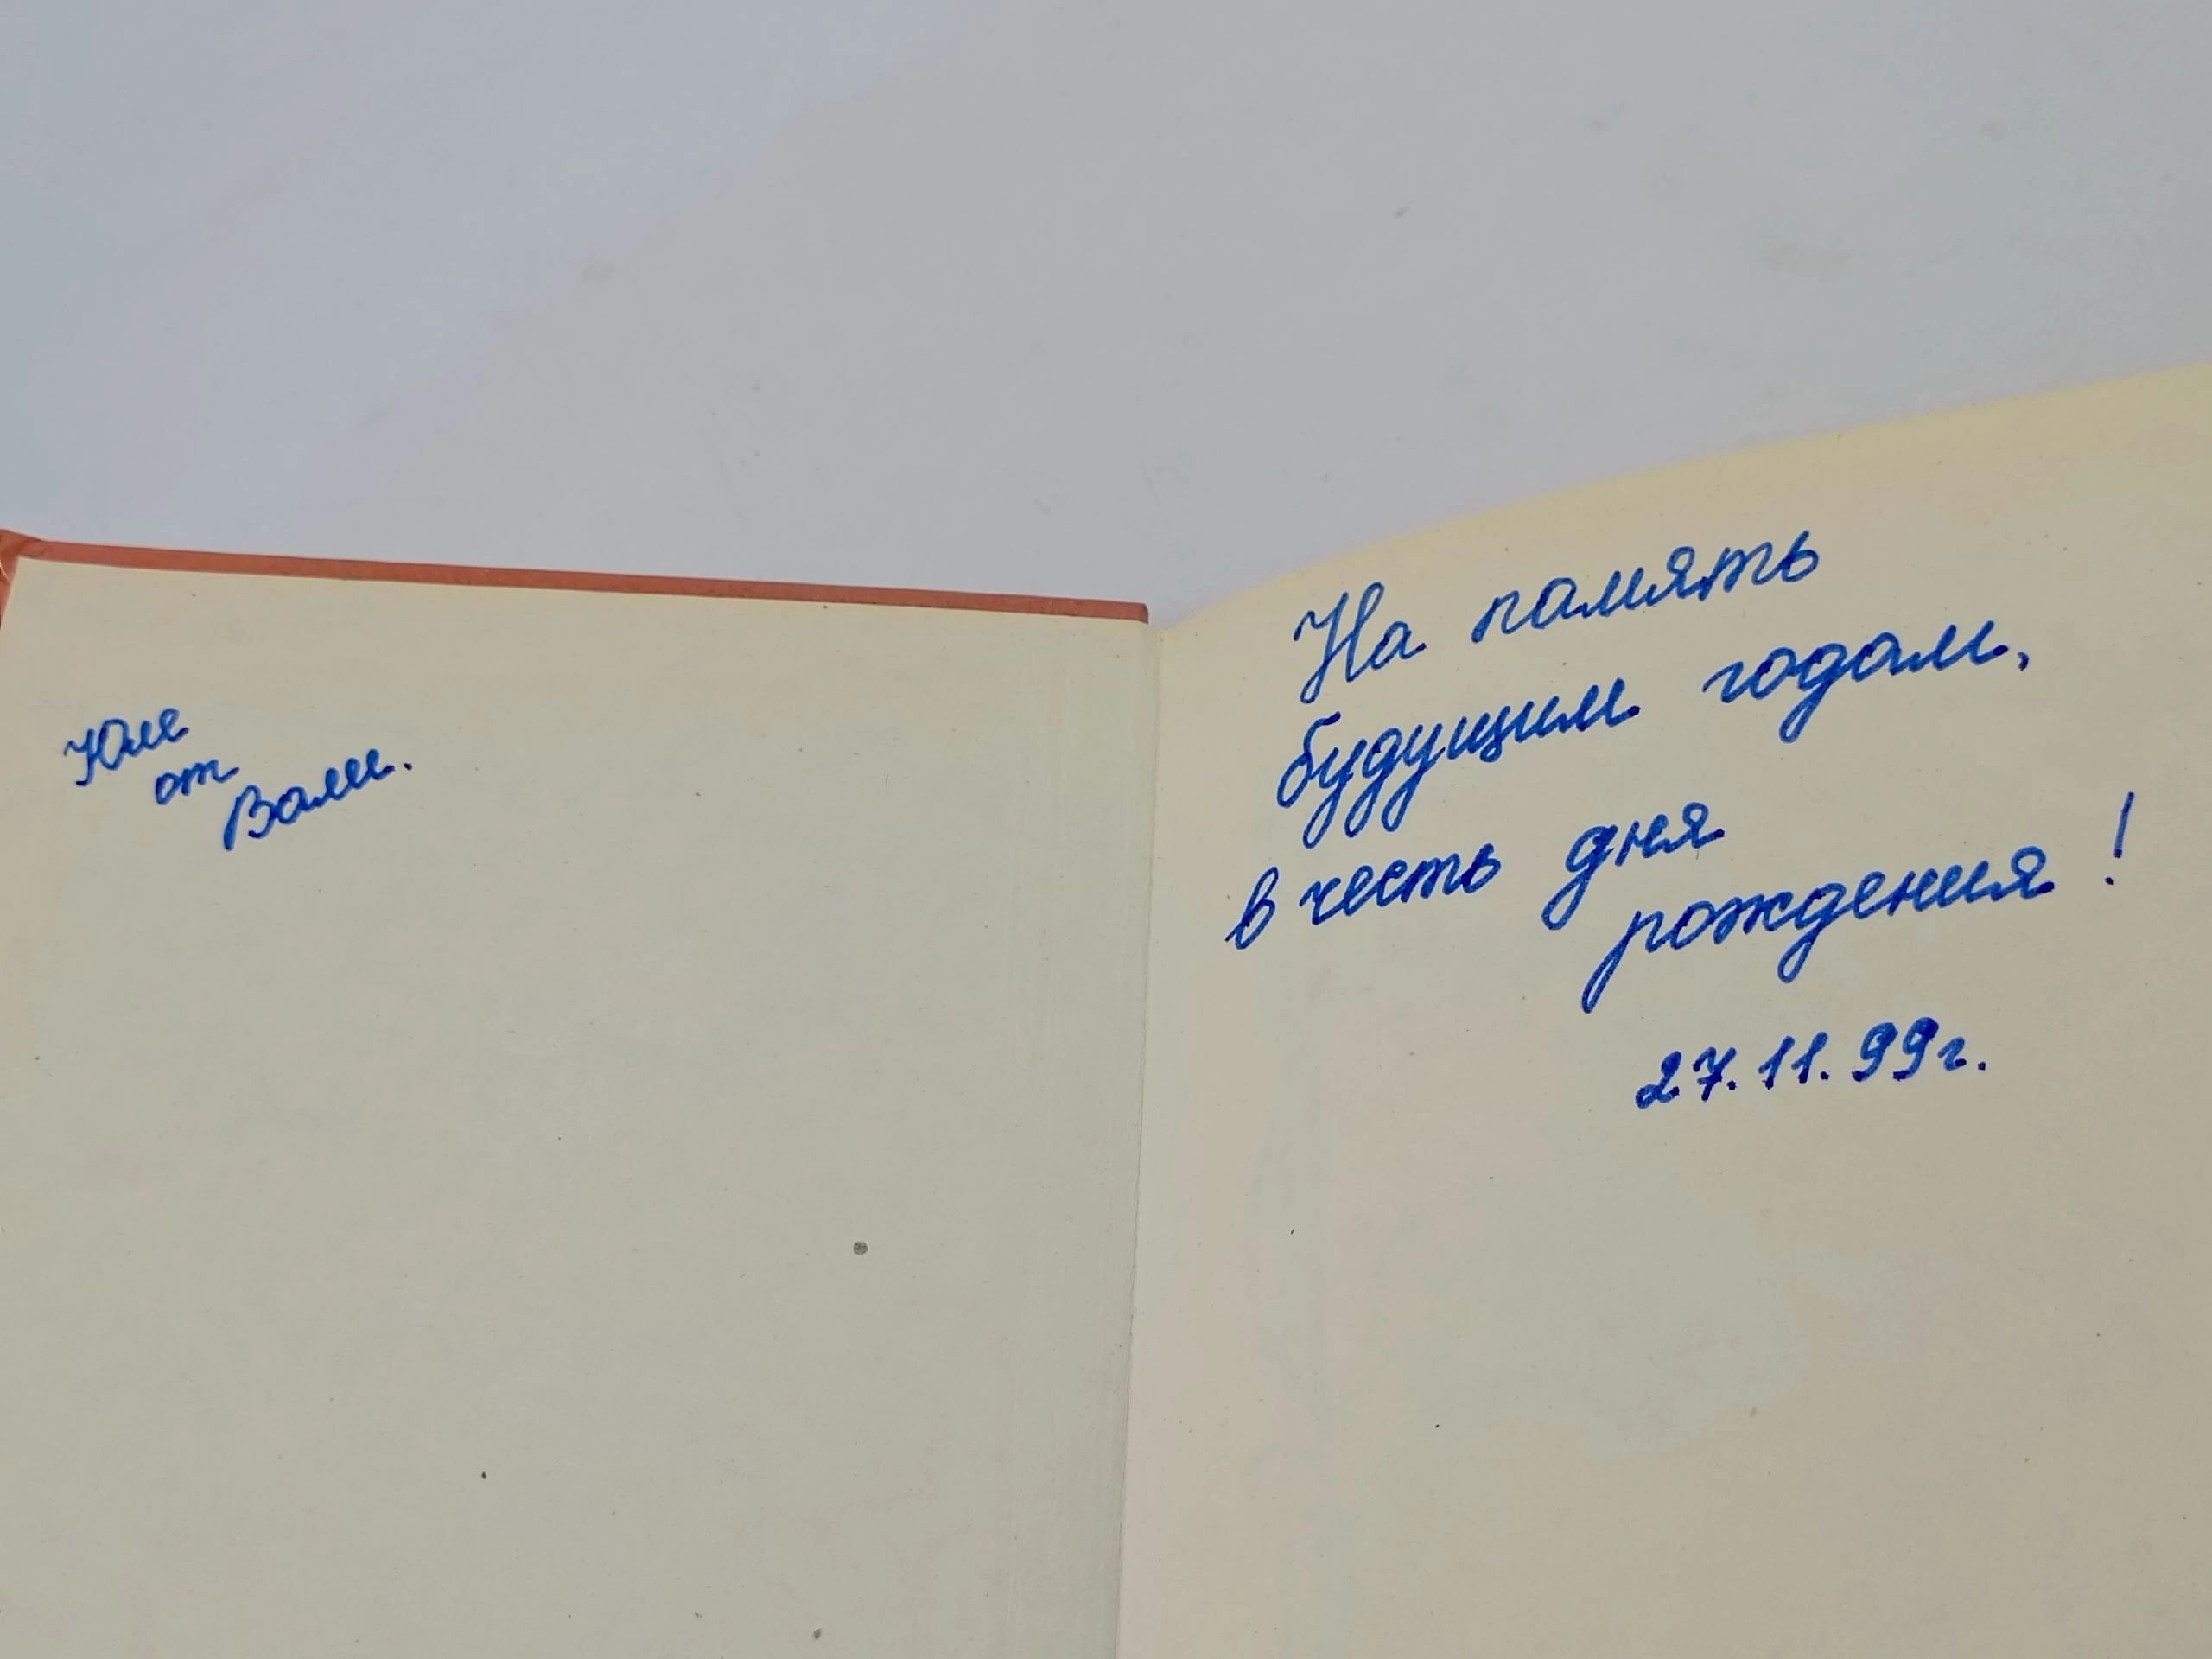 Юле
от
Вали.
На память
будущим годам,
в честь дня
рождения!
27.11.99г.